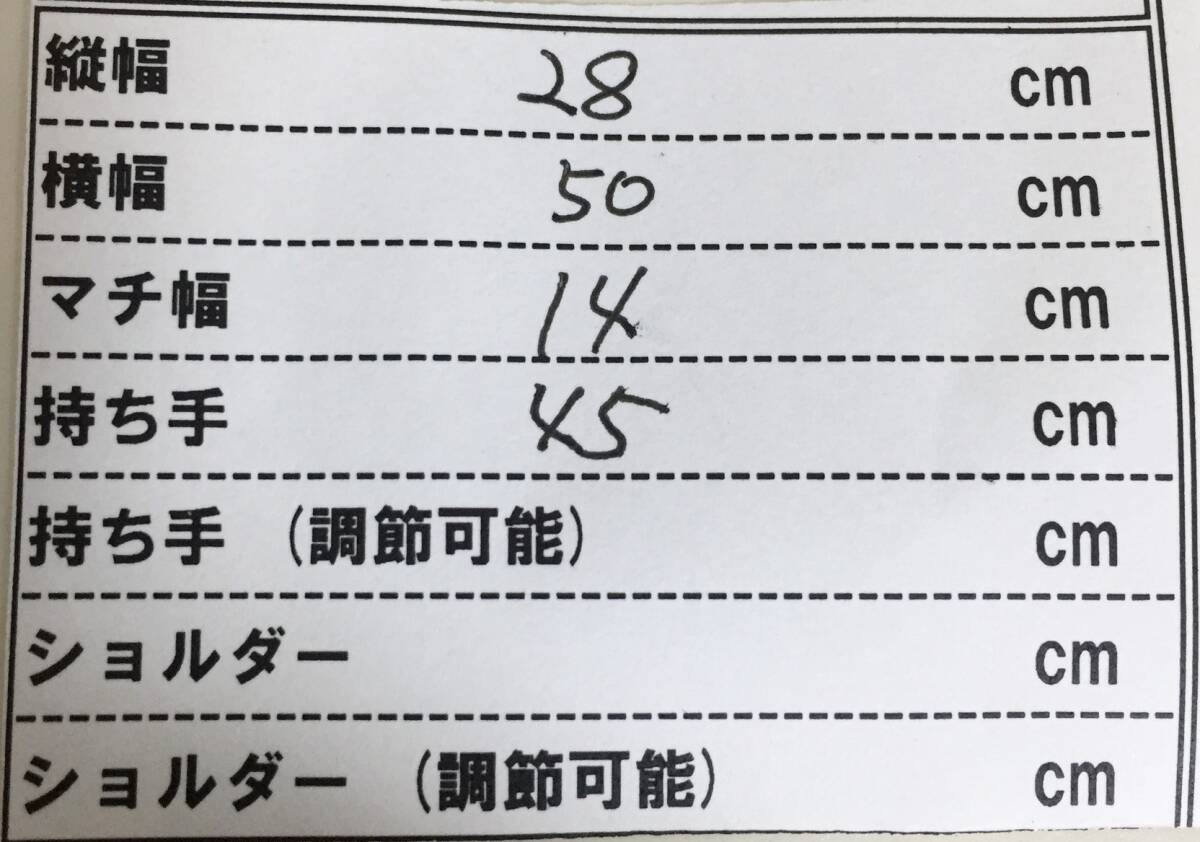 縦幅 28 cm
横幅 50 cm
マチ幅 14 cm
持ち手 45 cm
持ち手 (調節可能) cm
ショルダー cm
ショルダー (調節可能) cm